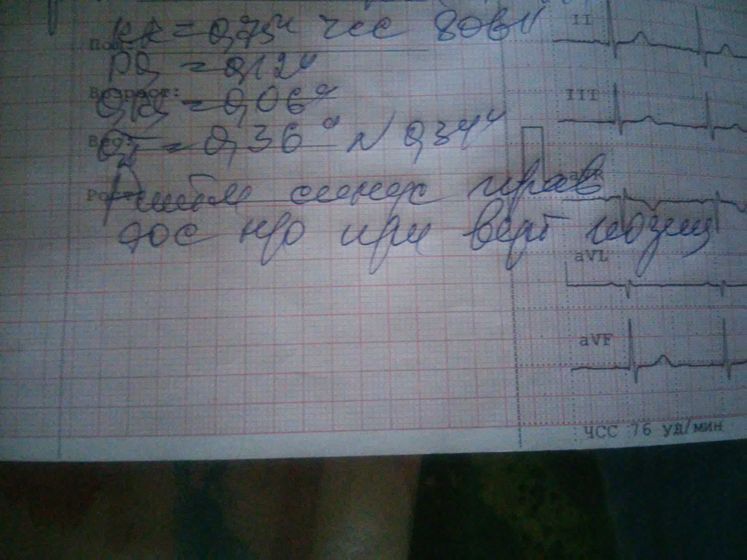 RR = 0,75" ЧСС 80 в 1'
II
PQ = 0,12"
QRS = 0,06"
III
QT = 0,36" N 0,34"
Ритм синус прав
ЭОС нро при верт позиц
aVL
aVF
ЧСС 76 уд/мин